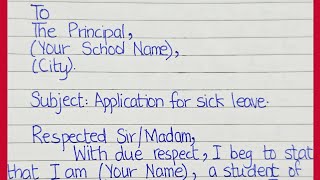 To
The Principal,
(Your School Name),
(City).
Subject: Application for sick leave.
Respected Sir/Madam,
With due respect, I beg to stat
that I am (Your Name), a student of